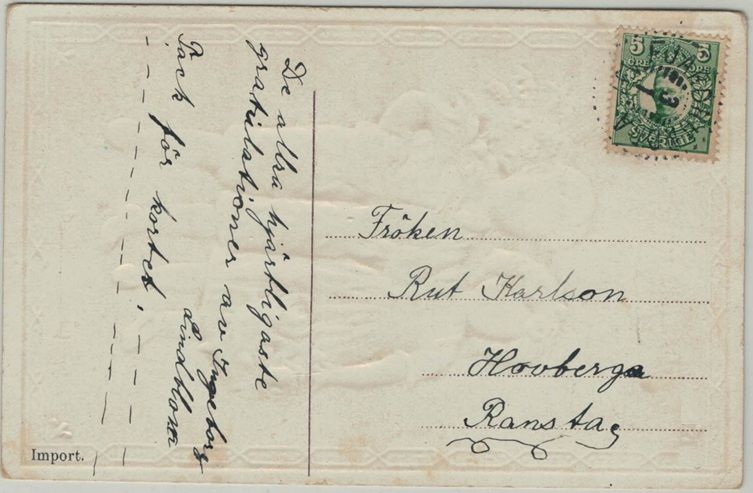 De allra hjärtligaste
gratulationer av Ingeborg
Lindblom
Tack för kortet
Fröken
Rut Karlson
Hovberga
Ransta
5 5
SVERIGE
Import.